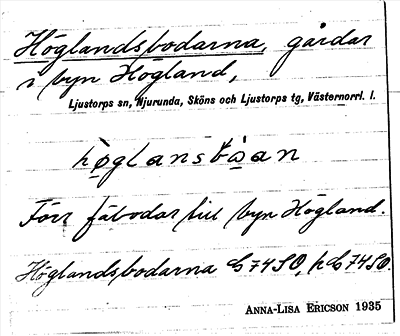 Höglandsbodarna, gårdar
i byn Högland,
Ljustorps sn, Njurunda, Sköns och Ljustorps tg, Västernorrl. l.
Förr fäbodar till byn Högland.
Höglandsbodarna C74SO, hC74SO.
ANNA-LISA ERICSON 1935